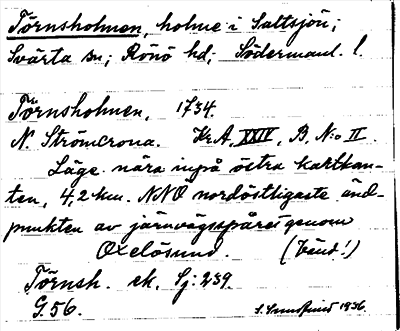 Törnsholmen, holme i Saltsjön;
Svärta sn; Rönö hd; Södermanl. l.
Törnsholmen, 1734.
N. Strömcrona. Kr.A, XXIV, B, N:o II.
Läge nära inpå östra kartkan-
ten, 4,2 km. NNO nordöstligaste änd-
punkten av järnvägsspåret genom
Oxelösund. (Länd!)
Törnsh. ek. Sj: 239.
G. 56.
1936.